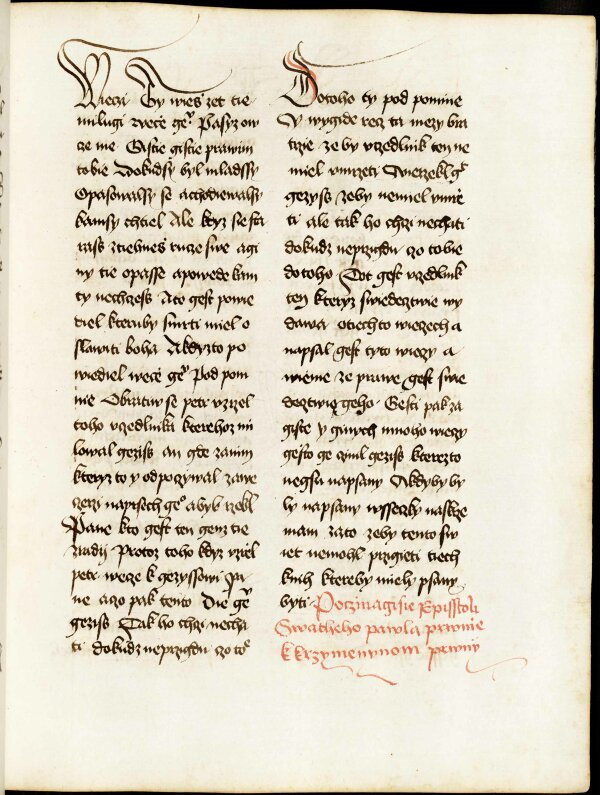 Wieczi Ty wies zet tie
milugi vece geᵒ Pasyz ow
cze me Gistie gistie prawim
tobie Dokudsy byl mladssy
Opasowalsy se achodiewalsy
kamsy chtiel Ale kdyz se sta
rass ztiehnes rucze swe a gi
ny tie opasse apowede kam
ty nechczess Ato gest powie
diel kteruby smrti miel o
slawiti boha Akdyzto po
wiediel wece geᵒ Pod pom
nie Obrativ se petr vzrzel
toho vczedlnika kterehoz mi
lowal geziss an gde zanim
kteryz to y odpoczywal zawe
czerzi naprsech geᵒ abyb rzekl
Pane kto gest ten genz tie
zradij Protoz toho kdyz vzrel
petr wece k gezyssowi Pa
ne aczo pak tento Die geᵒ
gezisś Tak ho chczi necha
ti dokudz neprzigdu czo toᵉ
Dotoho ty pod pomnie
Y wygide recz ta mezy bra
trzie ze by vczedlnik ten ne
miel vmrzeti Awerzekl geᵒ
gezyss zeby nemiel vmrze
ti ale tak ho chczi nechati
dokudz neprzigdu czo tobie
dotoho Tot gest vczedlnik
ten kteryz swiedecztwie wy
dawa otiechto wieczech a
napsal gest tyto wieczy a
wieme ze prawe gest swie
decztwie geho Gesti pak za
giste y ginych mnoho wieczy
gesto ge czinil gezisś kterezto
negsu napsany Akdyby by
ly napsany wsseczky naskrze
mam zato zeby tento sw
iet nemohl przigieti tiech
knih ktereby miely psany
byti Poczinagi sie Episstoli
Swateho pawla prwnie
k Krzymenynom prwny